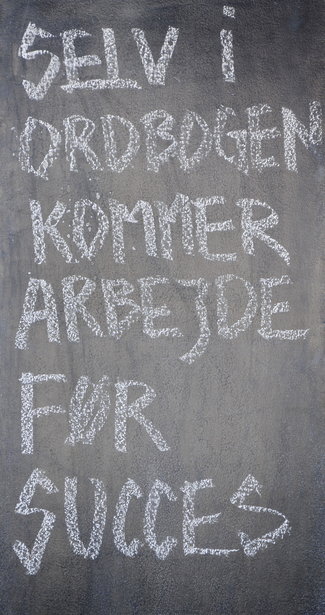 SELV i
ORDBOGEN
KOMMER
ARBEJDE
FØR
SUCCES